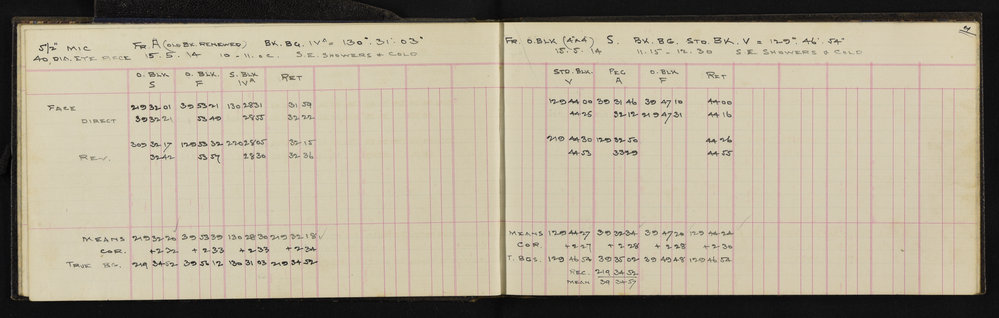 5½" MIC FR. A (OLD BK. RENEWED) BK. BG. IVᴬ = 130°. 31'. 03"
40. DIA. EYE PIECE 15. 5. 14 S.E. SHOWERS & COLD
O. BLK S O. BLK. F S. BLK IVᴬ RET
FACE 219 32 01 39 53 21 130 28 31 31 59
DIRECT 39 32 21 53 40 28 55 32 22
309 32 17 129 53 32 220 28 05 32 15
REV. 32 42 53 57 28 30 32 36
MEANS 219 32 20 39 53 39 130 28 30 219 32 18 ✓
COR. + 2 32 + 2 33 + 2 33 + 2 34
TRUE BG. 219 34 52 39 56 12 130 31 03 219 34 52
FR. O. BLK (4"x4") S. BK. BG. STD. BK. V = 129°. 46'. 54"
15. 5. 14 11. 15 - 12. 30 S.E SHOWERS & COLD
STD. BLK. V PEG A O. BLK F RET
129 44 00 39 31 46 39 47 10 44 00
44 25 32 12 219 47 31 44 16
219 44 30 129 32 50 44 26
44 53 33 29 44 55
MEANS 129 44 27 39 32 34 39 47 20 129 44 24
COR. + 2 27 + 2 28 + 2 28 + 2 30
T. BGS. 129 46 54 39 35 02 39 49 48 129 46 54
REC. 219 34 52
MEAN 39 34 57